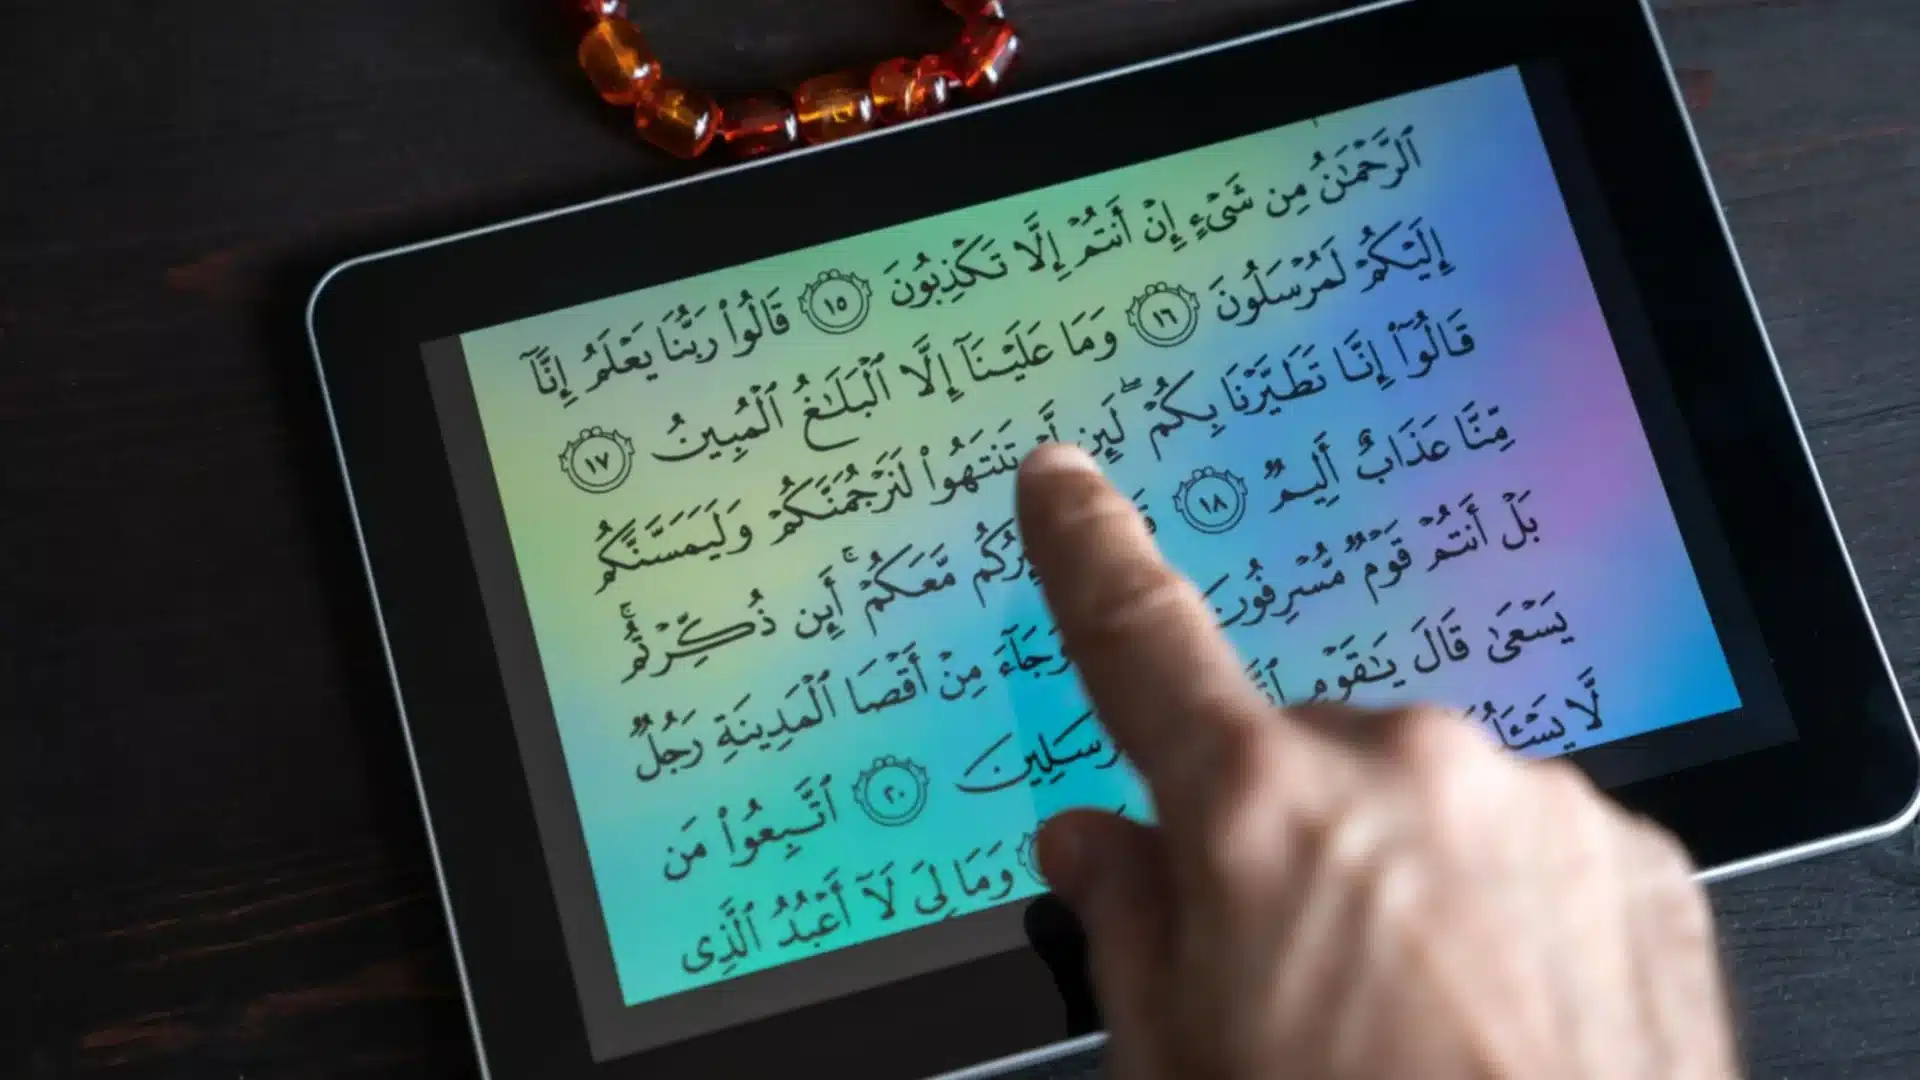 ٱلرَّحۡمَٰنُ مِن شَيۡءٍ إِنۡ أَنتُمۡ إِلَّا تَكۡذِبُونَ ١٥ قَالُواْ رَبُّنَا يَعۡلَمُ إِنَّآ
إِلَيۡكُمۡ لَمُرۡسَلُونَ ١٦ وَمَا عَلَيۡنَآ إِلَّا ٱلۡبَلَٰغُ ٱلۡمُبِينُ ١٧
قَالُوٓاْ إِنَّا تَطَيَّرۡنَا بِكُمۡۖ لَئِن تَنتَهُواْ لَنَرۡجُمَنَّكُمۡ وَلَيَمَسَّنَّكُم
مِّنَّا عَذَابٌ أَلِيمٞ ١٨ مَّعَكُمۡ أَئِن ذُكِّرۡتُمۚ
بَلۡ أَنتُمۡ قَوۡمٞ مُّسۡرِفُونَ وَجَآءَ مِنۡ أَقۡصَا ٱلۡمَدِينَةِ رَجُلٞ
يَسۡعَىٰ قَالَ يَٰقَوۡمِ ٢٠ ٱتَّبِعُواْ مَن
لَّا وَمَا لِيَ لَآ أَعۡبُدُ ٱلَّذِي